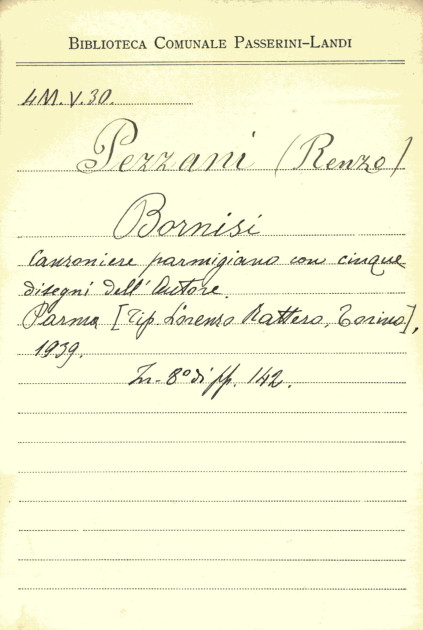 BIBLIOTECA COMUNALE PASSERINI-LANDI
4M.V.30.
Pezzani (Renzo)
Bornisi
Canzoniere parmigiano con cinque
disegni dell'Autore.
Parma [Tip. Lorenzo Rattero, Torino],
1939.
In-8° di pp. 142.